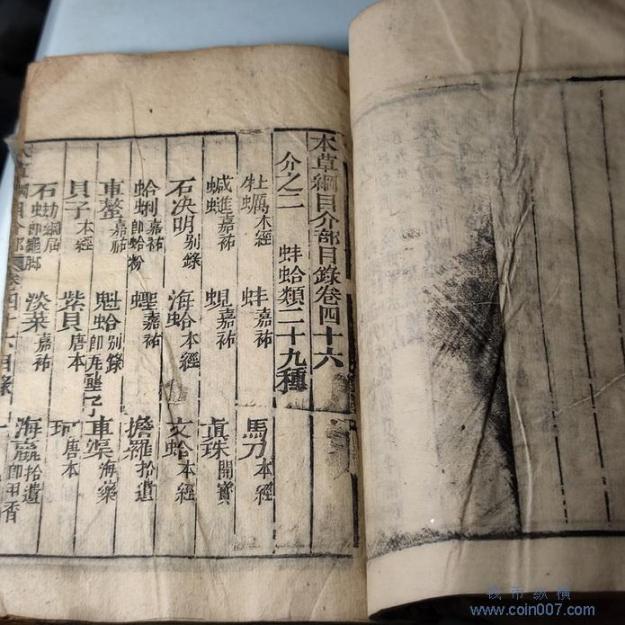 本草綱目介部目錄卷四十六
介之二 蚌蛤類二十九種
牡蠣本經 蚌嘉祐 馬刀本經
蝛𧓍嘉祐 蜆嘉祐 真珠開寶
石决明别錄 海蛤本經 文蛤本經
蛤蜊嘉祐即蛤粉 蟶嘉祐 擔羅拾遺
車螯嘉祐 魁蛤别錄即瓦壟子 車渠海藥
貝子本經 紫貝唐本 珂唐本
石蜐綱目 淡菜嘉祐 海蠃拾遺即甲香
錢币纵横
www.coin007.com